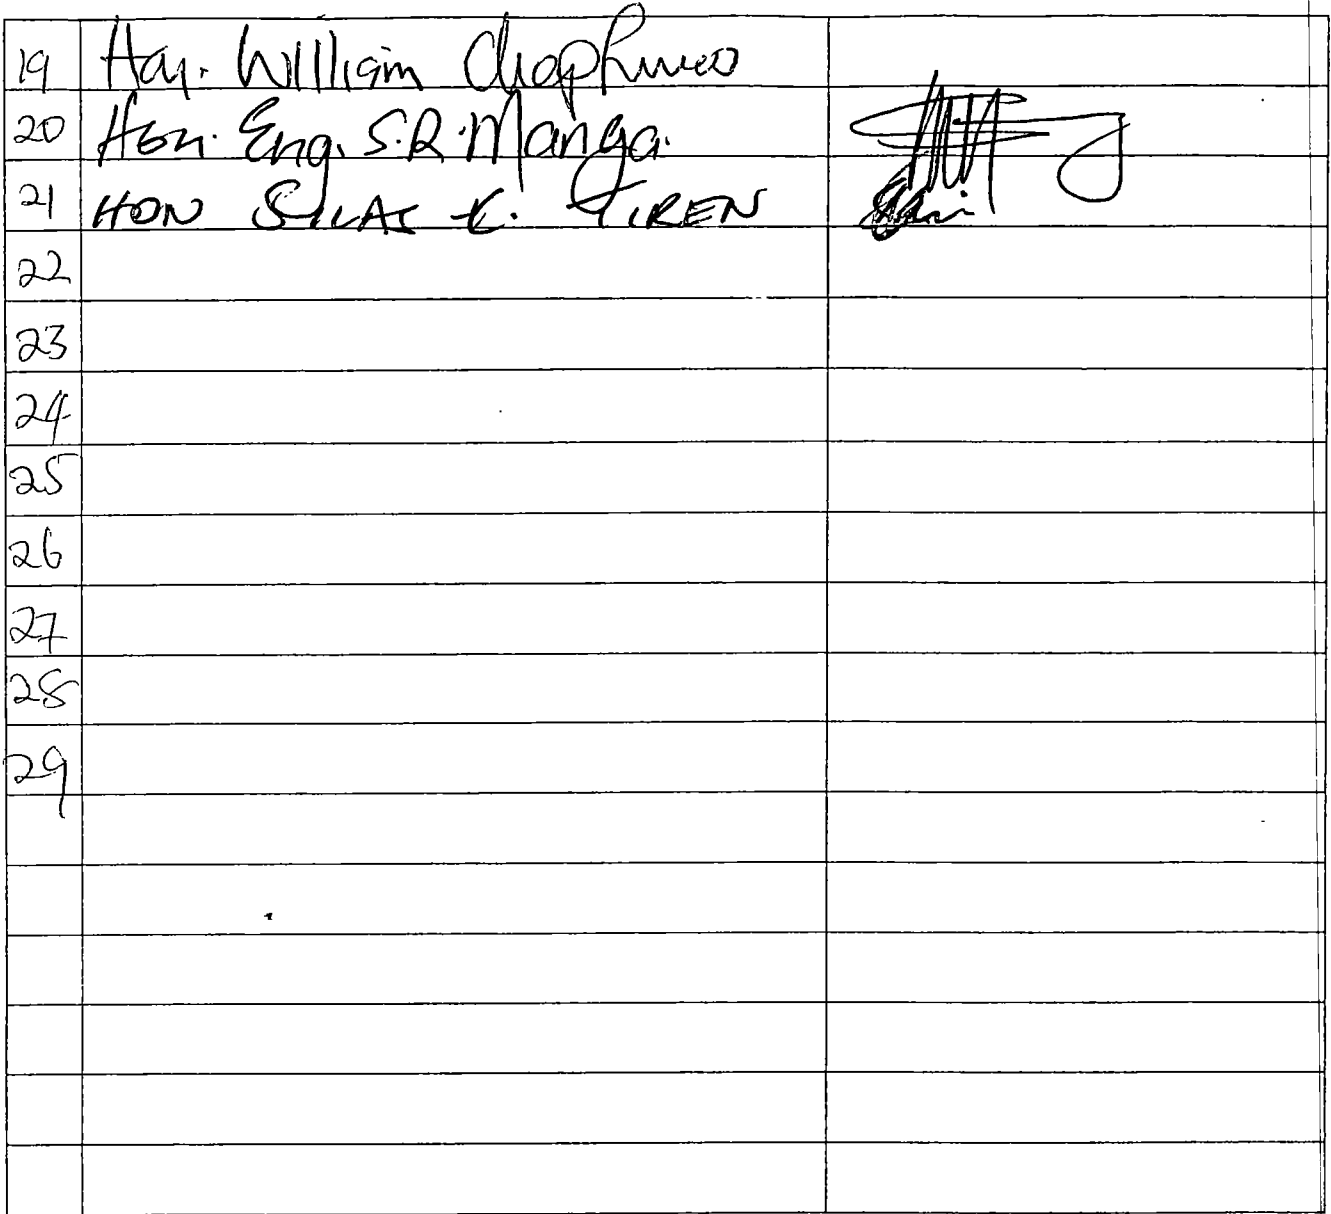 19 Hon. William Chepkuwo
20 Hon. Eng. S.R. Manga.
21 HON SILAS K. TIREN
22
23
24
25
26
27
28
29